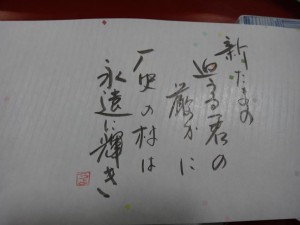 新たまの
迎える君の
厳かに
の村は
永遠に輝き